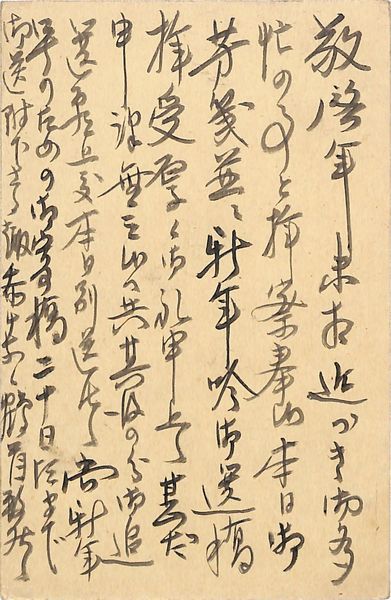 敬啓年末相近づき御多
忙の事と拝察奉候本日御
芳箋並に新年吟御送稿
拝受厚く御礼申上候甚だ
申譯無之候へ共其後の分御追
送願上度本日別送 御新年
号のための御寄稿二十日頃まで
御送附下さる